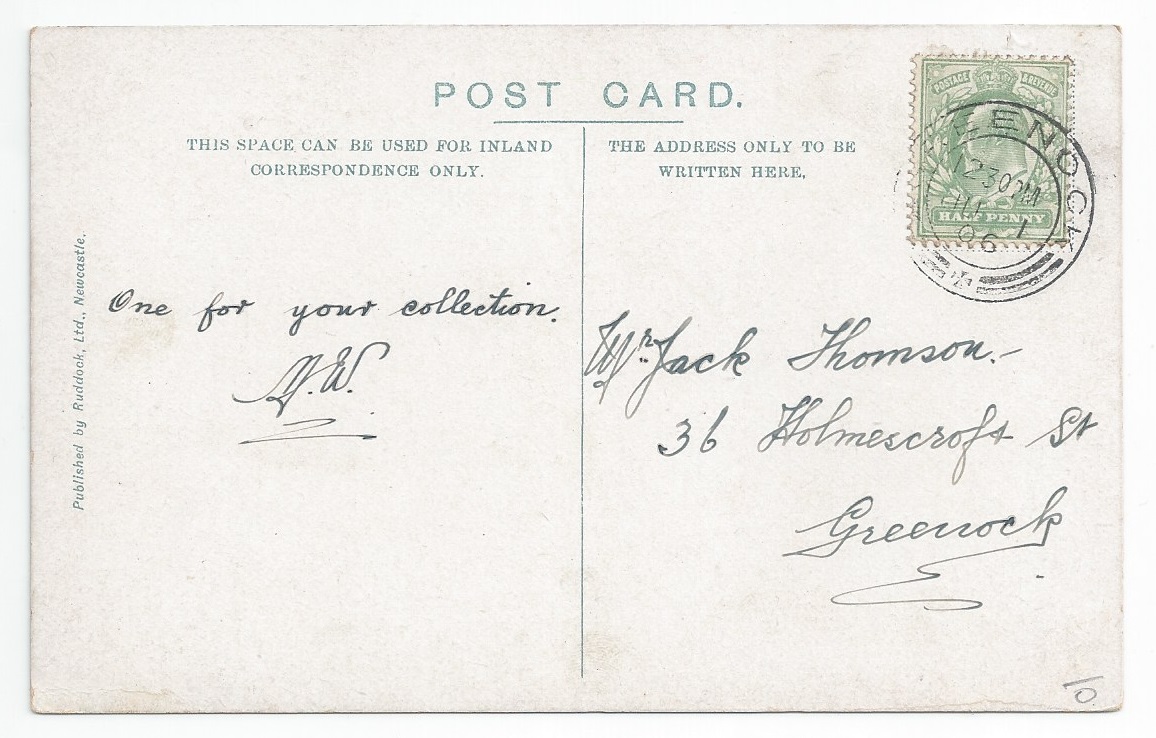 POST CARD.
THIS SPACE CAN BE USED FOR INLAND
CORRESPONDENCE ONLY.
THE ADDRESS ONLY TO BE
WRITTEN HERE,
POSTAGE & REVENUE
HALF PENNY
GREENOCK
12 30 PM
1
06
Published by Ruddock, Ltd., Newcastle.
One for your collection.
Mr Jack Thomson.-
36 Holmescroft St
Greenock
10